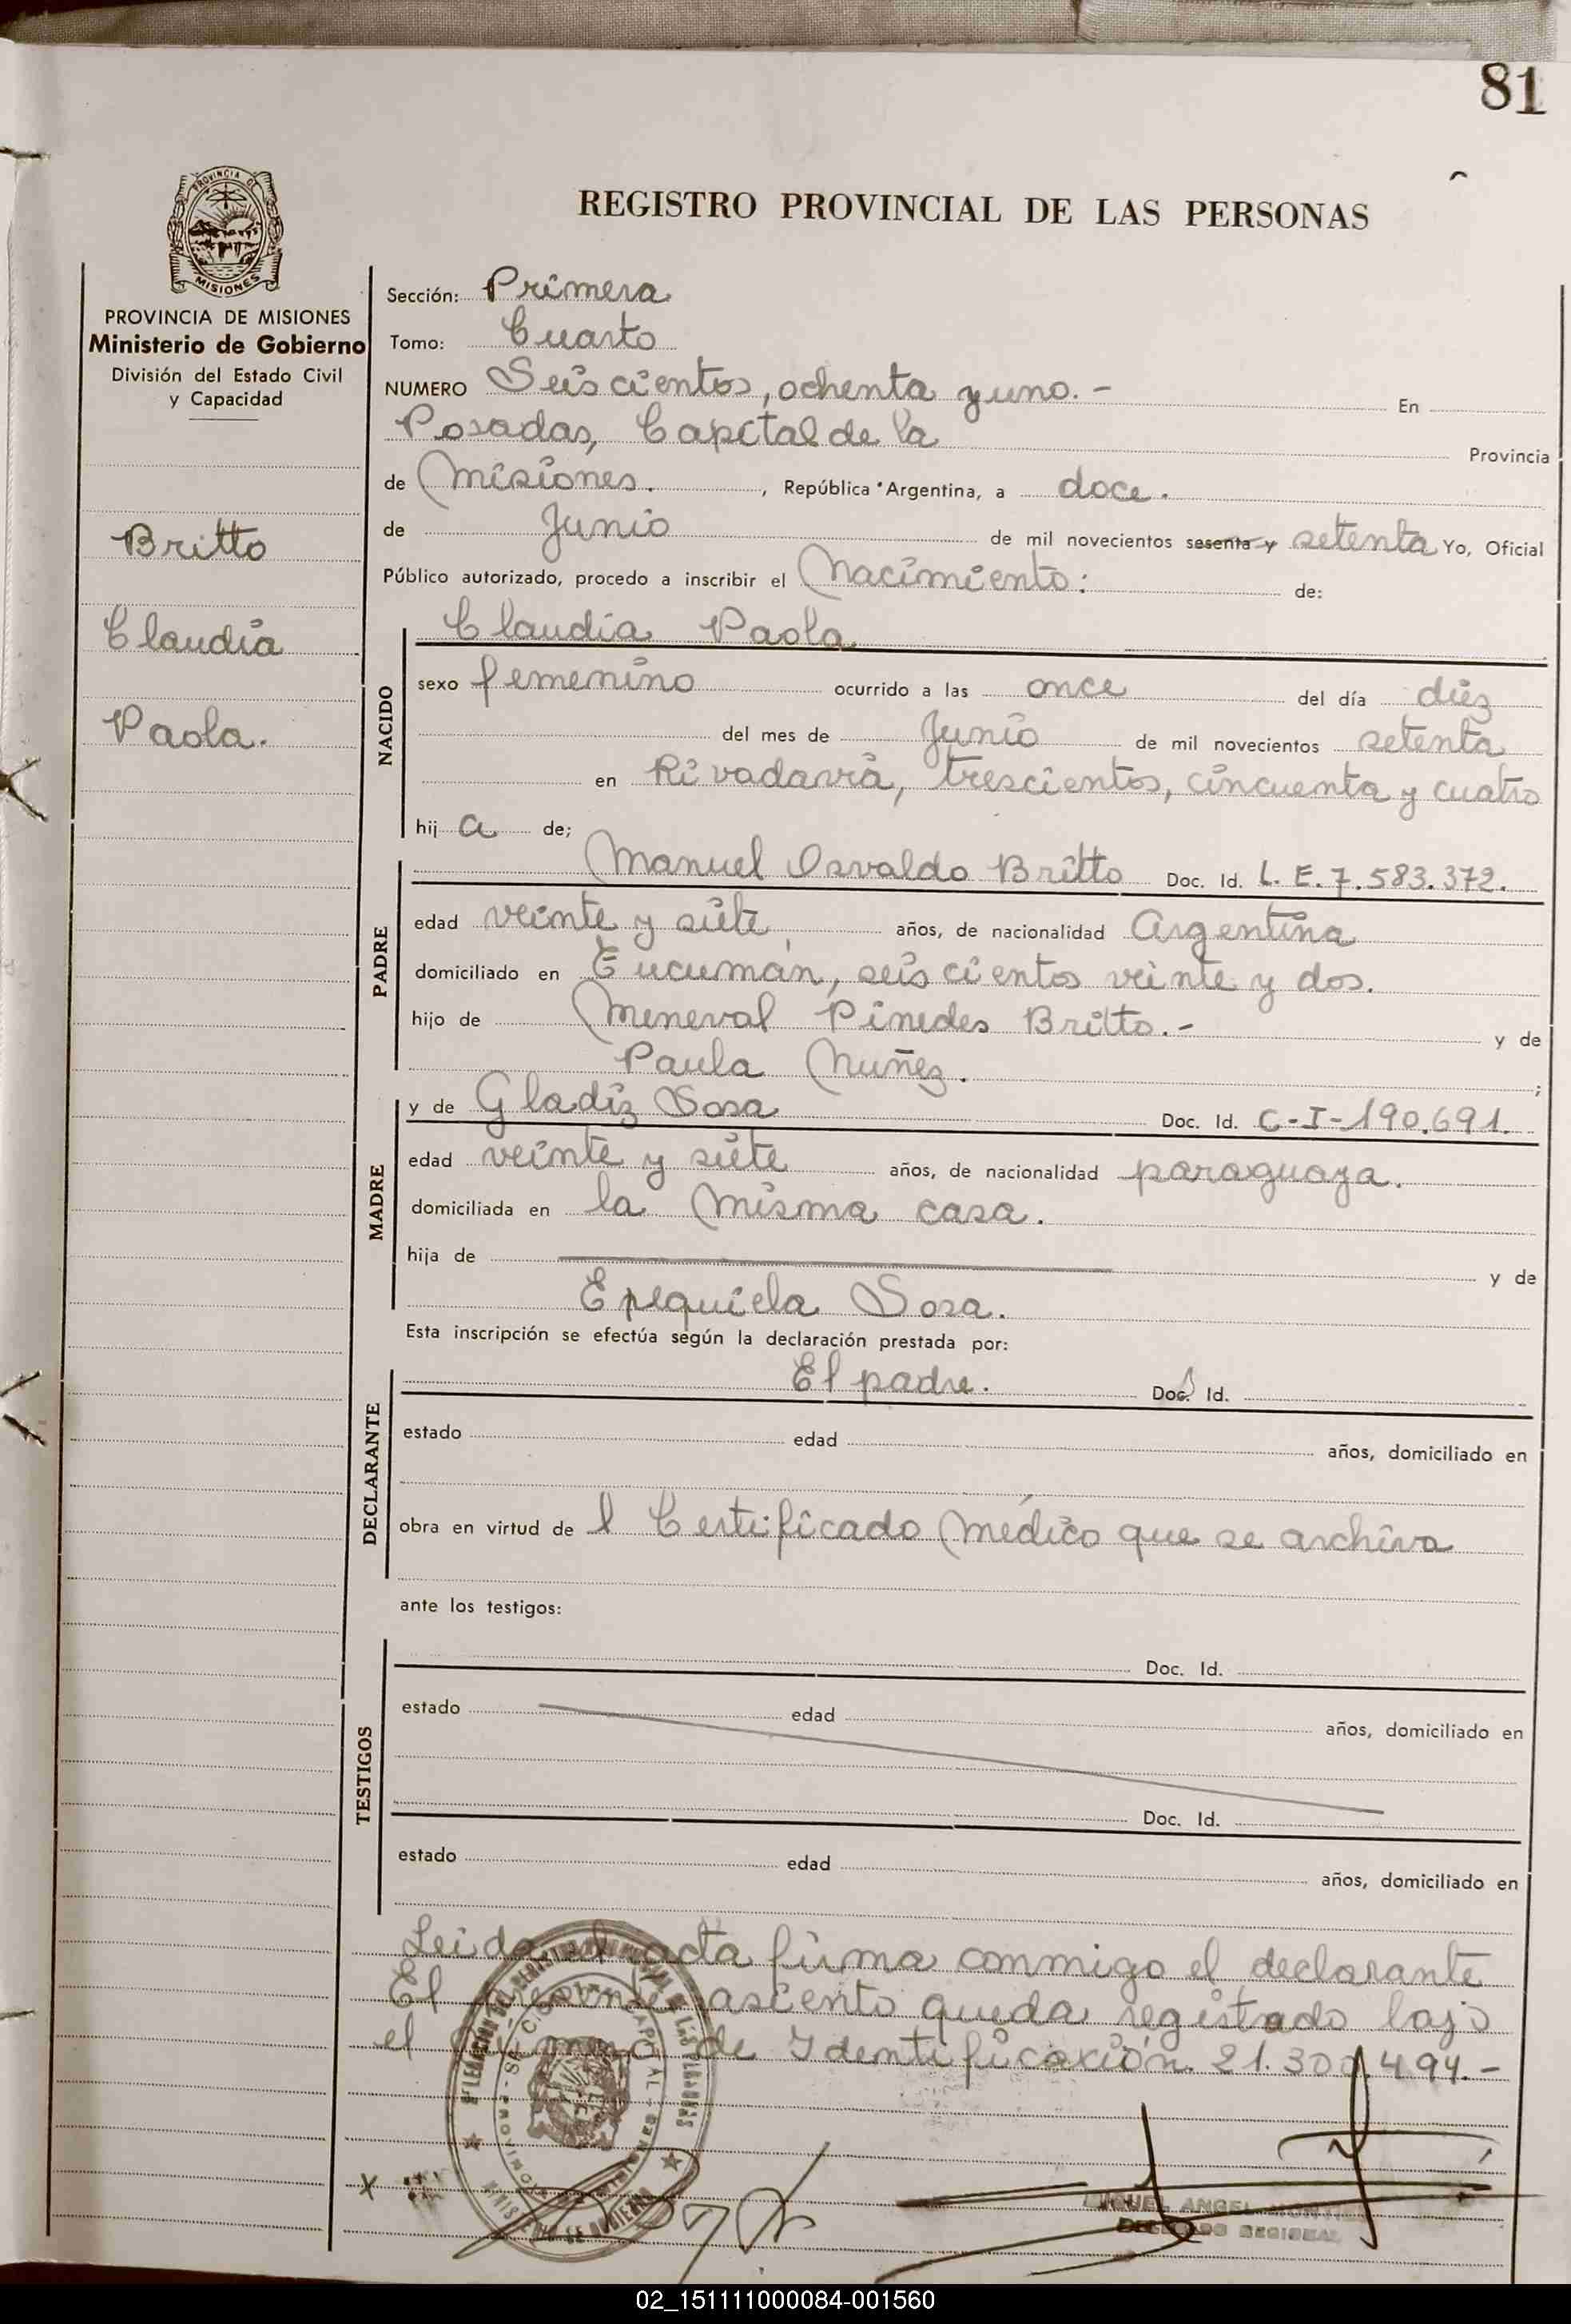 81
PROVINCIA DE
MISIONES
REGISTRO PROVINCIAL DE LAS PERSONAS
PROVINCIA DE MISIONES
Ministerio de Gobierno
División del Estado Civil
y Capacidad
Britto
Claudia
Paola.
Sección: Primera
Tomo: Cuarto
NUMERO Seiscientos, ochenta y uno.- En
Posadas, Capital de la Provincia
de Misiones. , República Argentina, a doce.
de Junio de mil novecientos sesenta y setenta Yo, Oficial
Público autorizado, procedo a inscribir el Nacimiento: de:
NACIDO
Claudia Paola
sexo femenino ocurrido a las once del día diez
del mes de Junio de mil novecientos setenta
en Rivadavia, trescientos, cincuenta y cuatro
hij a de;
PADRE
Manuel Osvaldo Britto Doc. Id. L. E. 7.583.372.
edad veinte y siete, años, de nacionalidad Argentina
domiciliado en Tucumán, seiscientos veinte y dos.
hijo de Meneval Pinedes Britto.- y de
Paula Nuñez. ;
MADRE
y de Gladiz Sosa Doc. Id. C-I-190.691.
edad veinte y siete años, de nacionalidad paraguaya.
domiciliada en la misma casa.
hija de y de
Sosa.
Esta inscripción se efectúa según la declaración prestada por:
DECLARANTE
El padre. Doc. Id.
estado edad años, domiciliado en
obra en virtud de l Certificado Médico que se archiva
ante los testigos:
TESTIGOS
Doc. Id.
estado edad años, domiciliado en
Doc. Id.
estado edad años, domiciliado en
Leida el acta firma conmigo el declarante
El presente asciento queda registrado bajo
el número de Identificación 21.300.494.-
MIGUEL ANGEL
DELEGADO REGIONAL
02_151111000084-001560